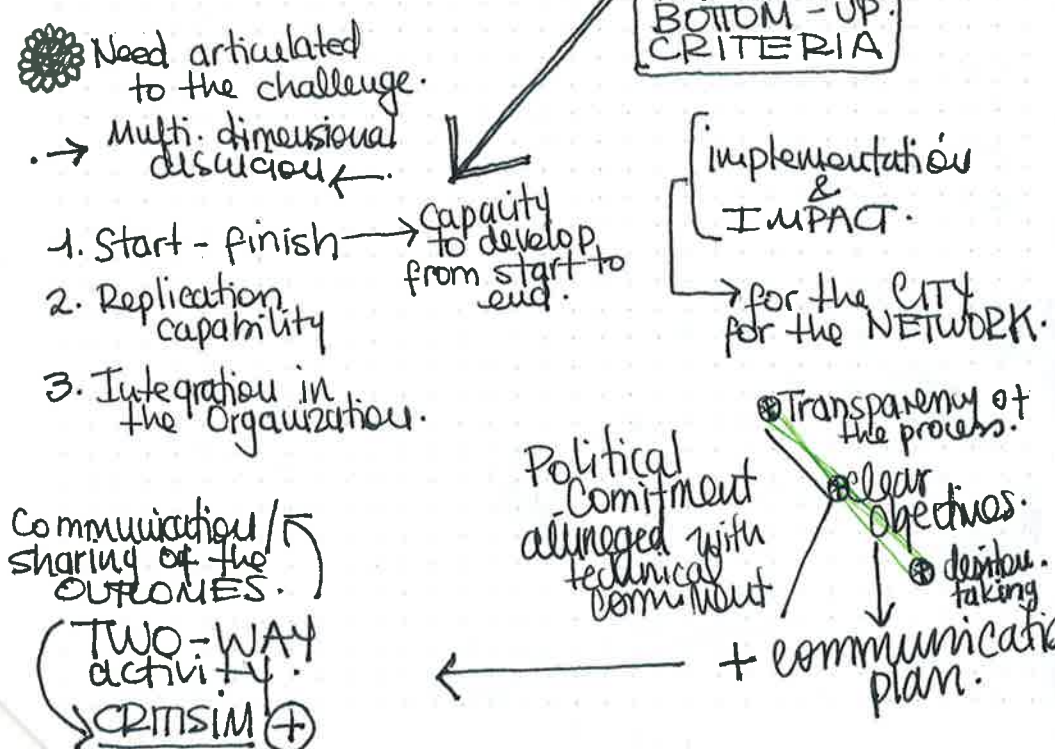 BOTTOM-UP.
CRITERIA
Need articulated
to the challenge.
Multi. dimensional
discucion
1. Start - finish
capacity
to develop
from start to
end.
2. Replication
capability
3. Integration in
the Organization.
implementation
&
IMPACT.
for the CITY
for the NETWORK.
Transparency of
the process.
clear
objectives.
desition.
taking
Political
Comitment
aluneged with
technical
commitment
+ communicatio
plan.
Communication/
sharing of the
OUTCOMES.
TWO-WAY
activity.
CRITISIM +